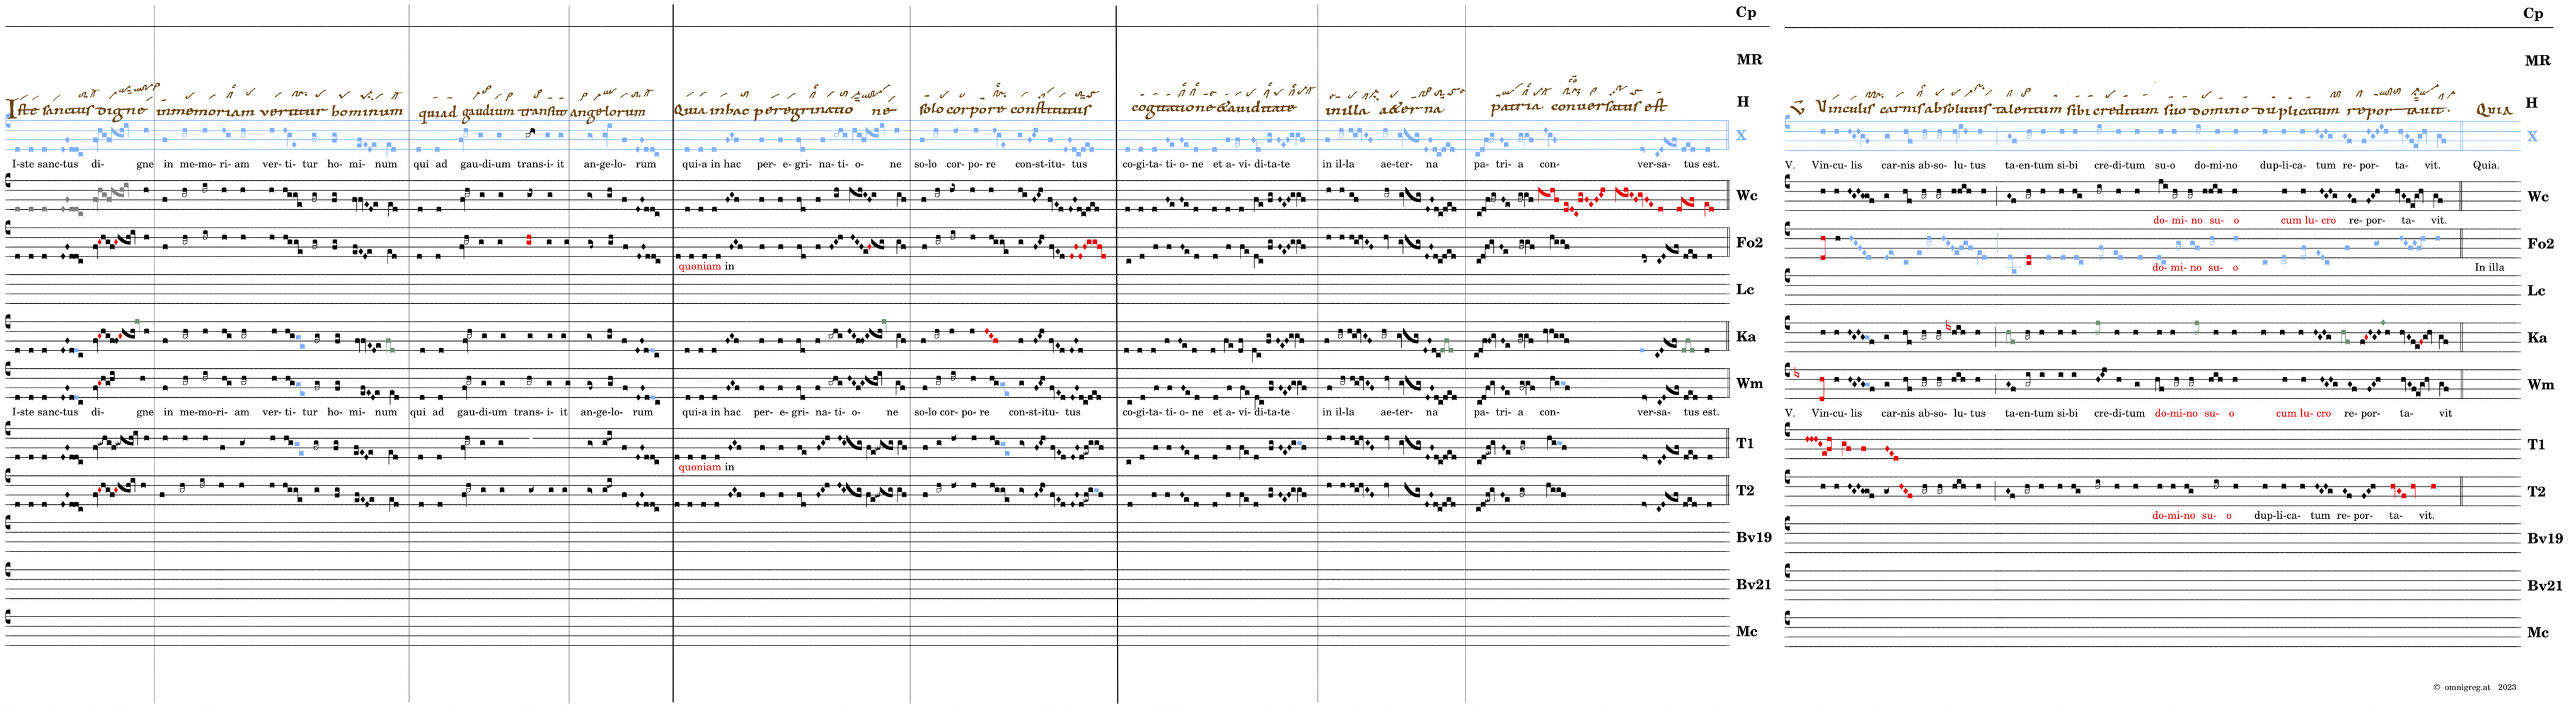 Cp Cp
MR MR
Iste sanctus digne inmemoriam vertitur hominum quiad gaudium transiit angelorum Quia inhac peregrinatio ne solo corpore constitutus cogitatione &auiditate inilla a&er na patria conuersatus est H V Vinculis carnis absolutus talentum sibi creditum suo domino duplicatum repor tauit. Quia H
X X
I-ste sanc-tus di- gne in me-mo-ri- am ver- ti- tur ho- mi- num qui ad gau-di-um trans-i- it an-ge-lo- rum qui-a in hac per- e- gri- na- ti- o- ne so-lo cor- po- re con-st-itu- tus co-gi-ta- ti- o- ne et a- vi- di-ta-te in il-la ae-ter- na pa- tri- a con- ver-sa- tus est. V. Vin-cu- lis car-nis ab-so- lu- tus ta-en-tum si-bi cre-di-tum su-o do-mi-no dup-li-ca- tum re- por- ta- vit. Quia.
Wc Wc
do- mi- no su- o cum lu- cro re- por- ta- vit.
Fo2 Fo2
quoniam in do- mi- no su- o In illa
Lc Lc
Ka Ka
Wm Wm
I-ste sanc-tus di- gne in me-mo-ri- am ver- ti- tur ho- mi- num qui ad gau-di-um trans- i- it an-ge-lo- rum qui-a in hac per- e- gri- na- ti- o- ne so-lo cor- po- re con-st-itu- tus co-gi-ta- ti- o- ne et a- vi- di-ta-te in il-la ae-ter- na pa- tri- a con- ver-sa- tus est. V. Vin-cu- lis car-nis ab-so- lu- tus ta-en-tum si-bi cre-di-tum do-mi-no su- o cum lu- cro re- por- ta- vit
T1 T1
quoniam in
T2 T2
do-mi-no su- o dup-li-ca- tum re- por- ta- vit.
Bv19 Bv19
Bv21 Bv21
Mc Mc
© omnigreg.at 2023